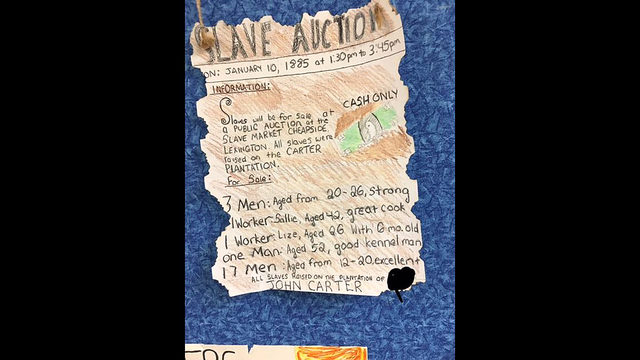 SLAVE AUCTION
ON: JANUARY 10, 1885 at 1:30pm to 3:45pm
INFORMATION:
CASH ONLY
Slaves will be for sale at
a PUBLIC AUCTION at the
SLAVE MARKET CHEAPSIDE,
LEXINGTON. All slaves were
raised on the CARTER
PLANTATION.
For Sale:
3 Men: Aged from 20-26, strong
1 Worker: Sallie, Aged 42, great cook
1 Worker: Lize, Aged 26 With 6 mo. old
one Man: Aged 52, good kennel man
17 Men: Aged from 12-20, excellent
ALL SLAVES RAISED ON THE PLANTATION OF
JOHN CARTER